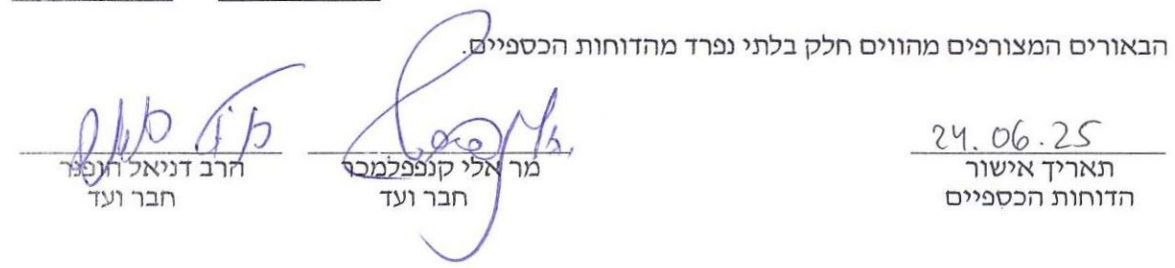 הבאורים המצורפים מהווים חלק בלתי נפרד מהדוחות הכספיים.
24.06.25
תאריך אישור
הדוחות הכספיים
מר אלי קנפפלמכר
חבר ועד
הרב דניאל הופנר
חבר ועד